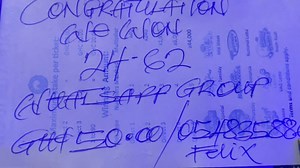 CONGRATULATION
WE WON
24-62
WHATSAPP GROUP
GH₵ 50.00/05483588
Felix